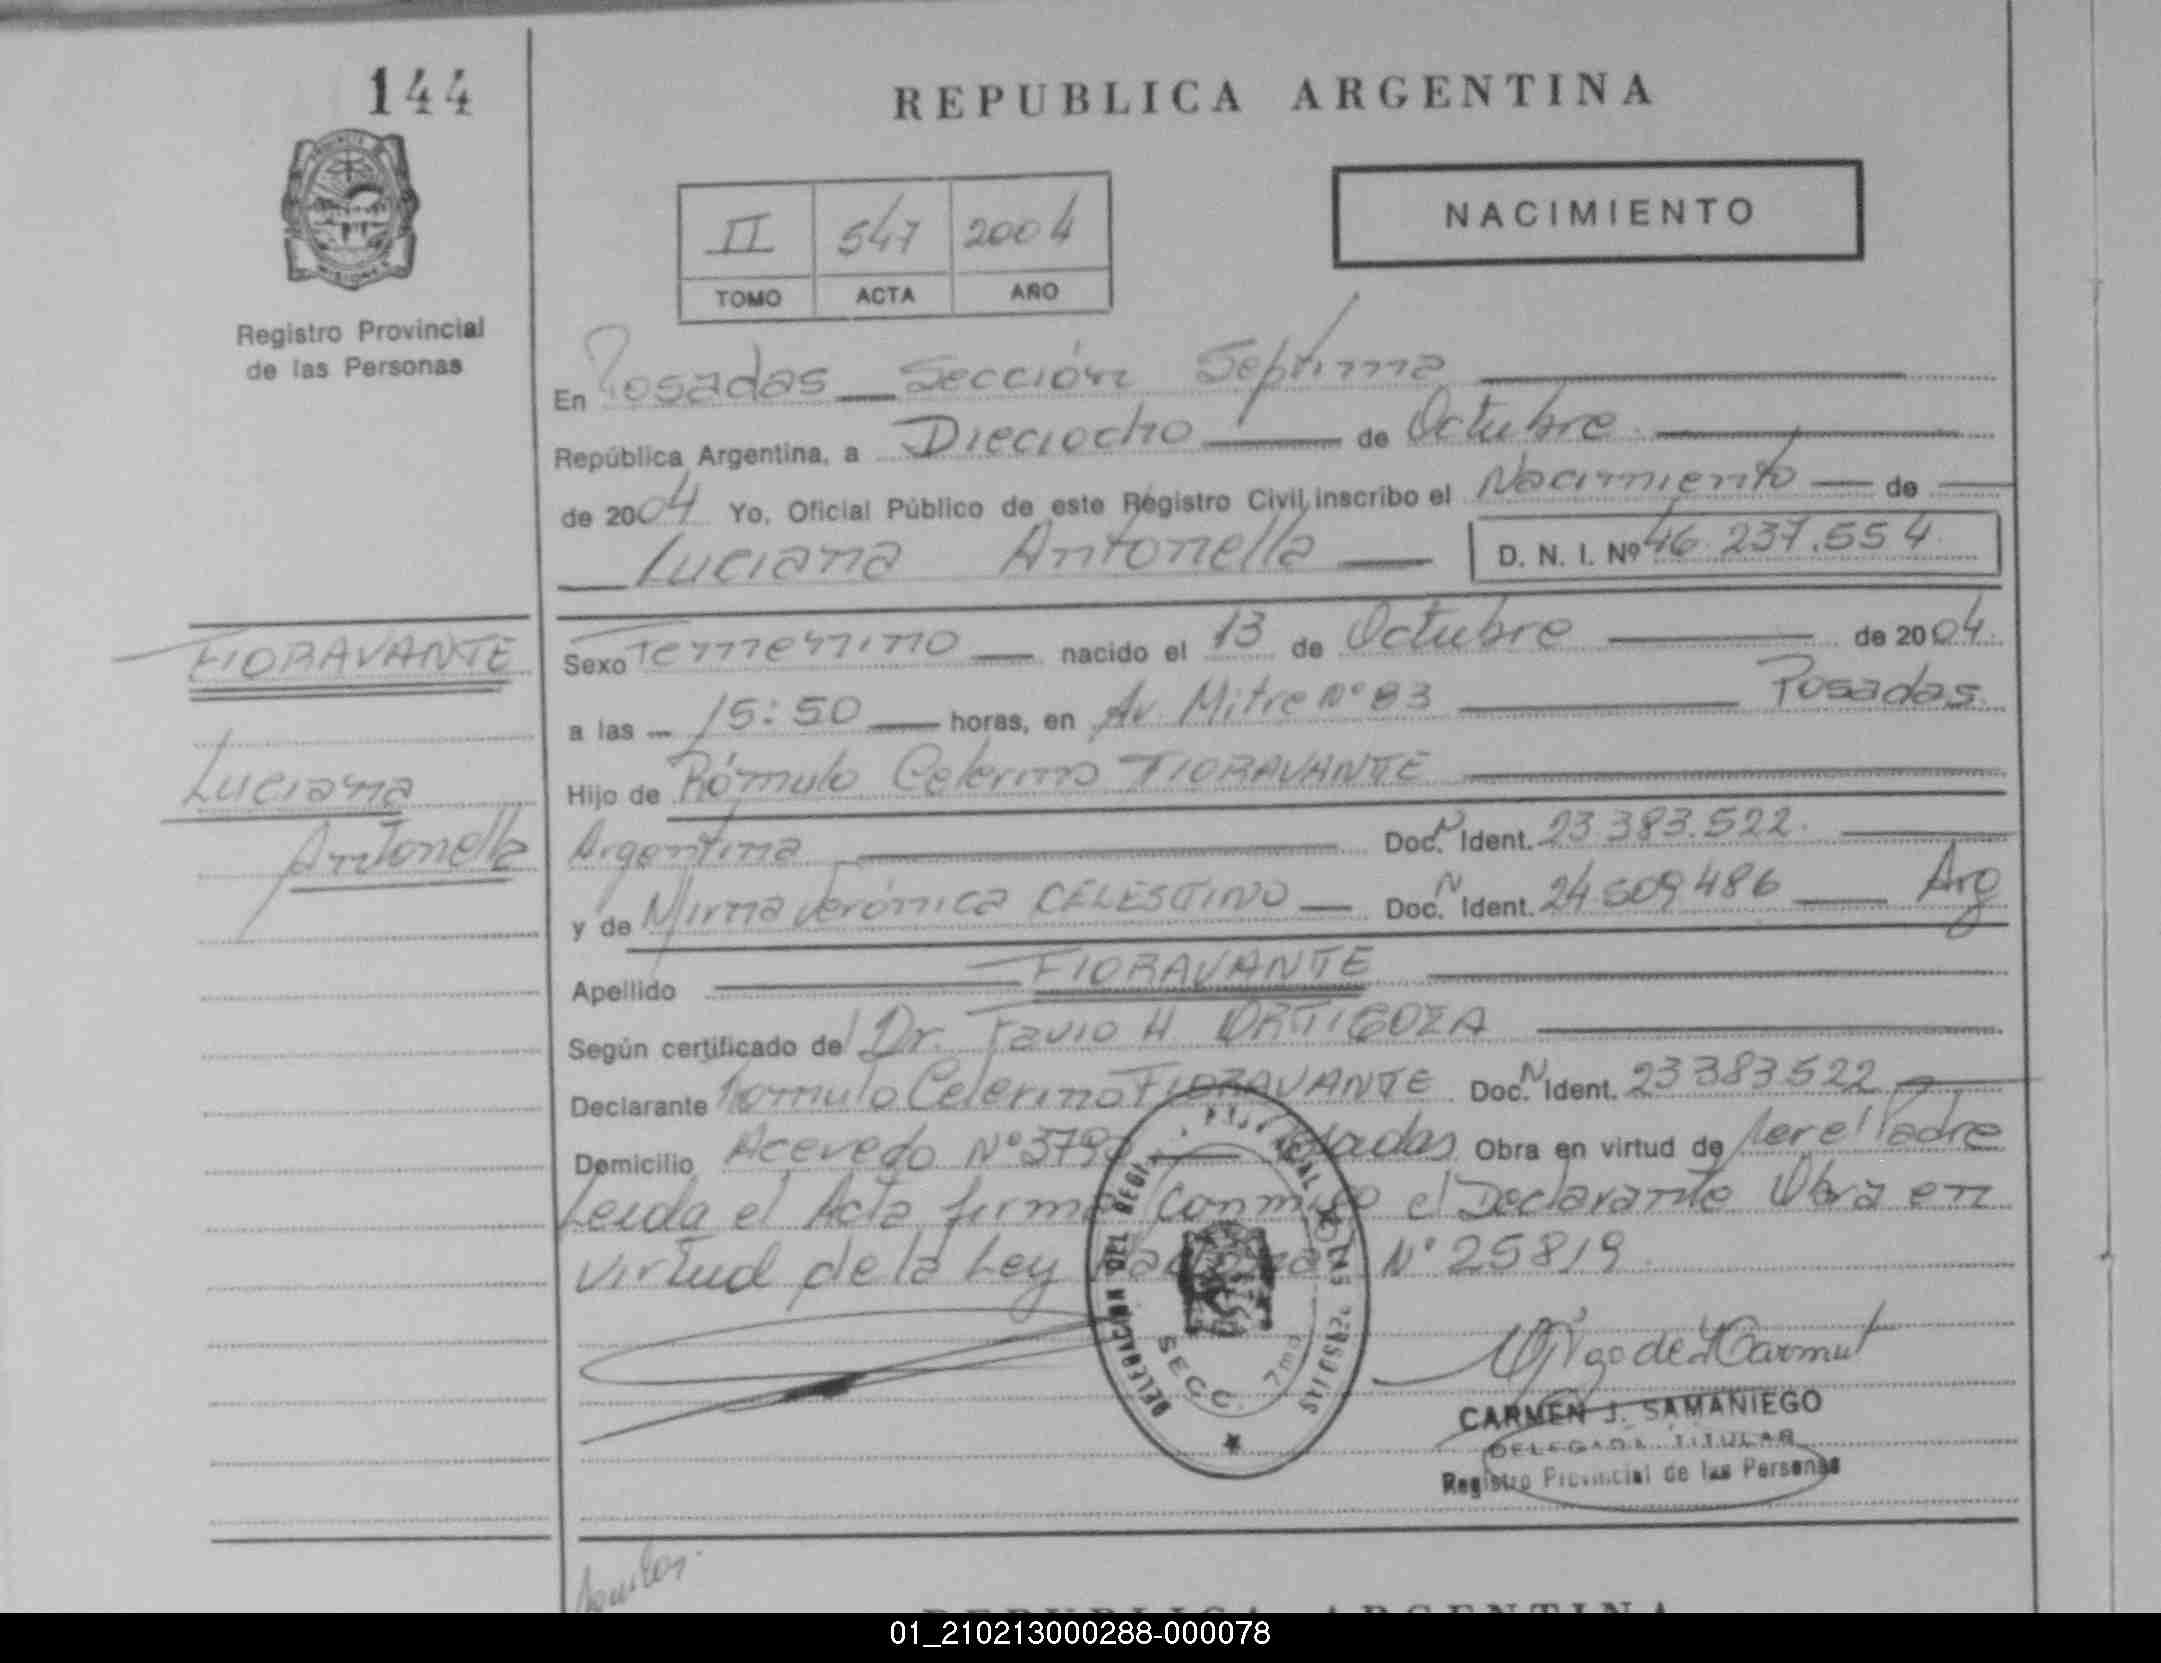 144
REPUBLICA ARGENTINA
PROVINCIA
MISIONES
Registro Provincial
de las Personas
II 547 2004
TOMO ACTA AÑO
NACIMIENTO
En Posadas — Sección Septima
República Argentina, a Dieciocho — de Octubre
de 2004 Yo, Oficial Público de este Registro Civil, inscribo el Nacimiento — de
Luciana Antonella — D. N. I. Nº 46.237.554
FIORAVANTE
Luciana
Antonella
Sexo Femenino — nacido el 13 de Octubre — de 2004
a las — 15:50 — horas, en Av. Mitre Nº 83 — Posadas
Hijo de Rómulo Celerino FIORAVANTE
Argentina — Doc. N Ident. 23.383.522.
y de Mirna Verónica CELESTINO — Doc. N Ident. 24.509.486 — Arg
Apellido — FIORAVANTE
Según certificado de Dr. Favio H. ORTIGOZA
Declarante Romulo Celerino FIORAVANTE Doc. N Ident. 23383522
Domicilio Acevedo Nº 379 — Posadas Obra en virtud de ser el Padre
Leida el Acta firma Conmigo el Declarante Obra en
virtud de la Ley Nacional Nº 25819
DELEGACION DEL REGI. PROVINCIAL DE LAS PERSONAS
SECC. 7ma
CARMEN J. SAMANIEGO
DELEGADA TITULAR
Registro Provincial de las Personas
REPUBLICA ARGENTINA
01_210213000288-000078